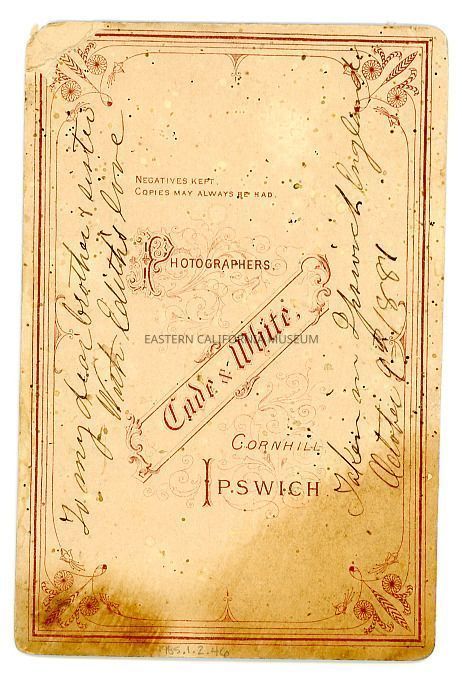 NEGATIVES KEPT.
COPIES MAY ALWAYS BE HAD.
PHOTOGRAPHERS.
Cade & White,
CORNHILL
IPSWICH
To my dear brother & sister
With Edith's love
Taken in Ipswich England
October 9th 1881
EASTERN CALIFORNIA MUSEUM
1985.1.2.46